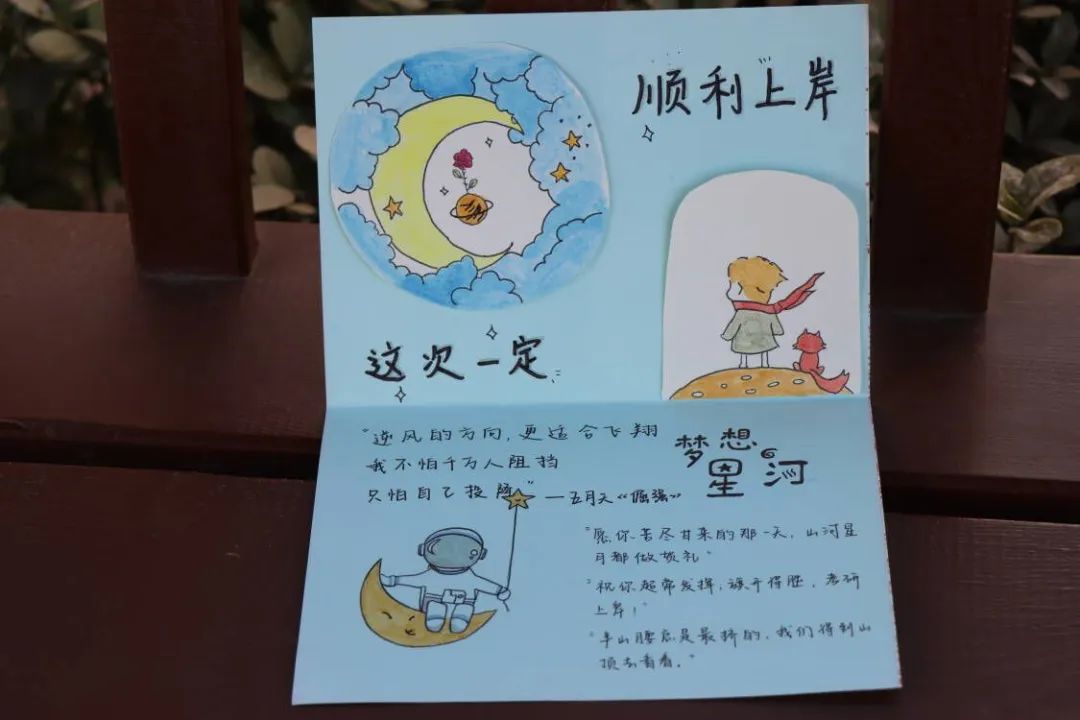 顺利上岸
这次一定
"逆风的方向，更适合飞翔
我不怕千万人阻挡
只怕自己投降"
—五月天《倔强》
梦想
星河
"愿你苦尽甘来的那一天，山河星
月都做贺礼"
"祝你超常发挥，旗开得胜，考研
上岸！"
"半山腰总是最挤的，我们得到山
顶去看看。"